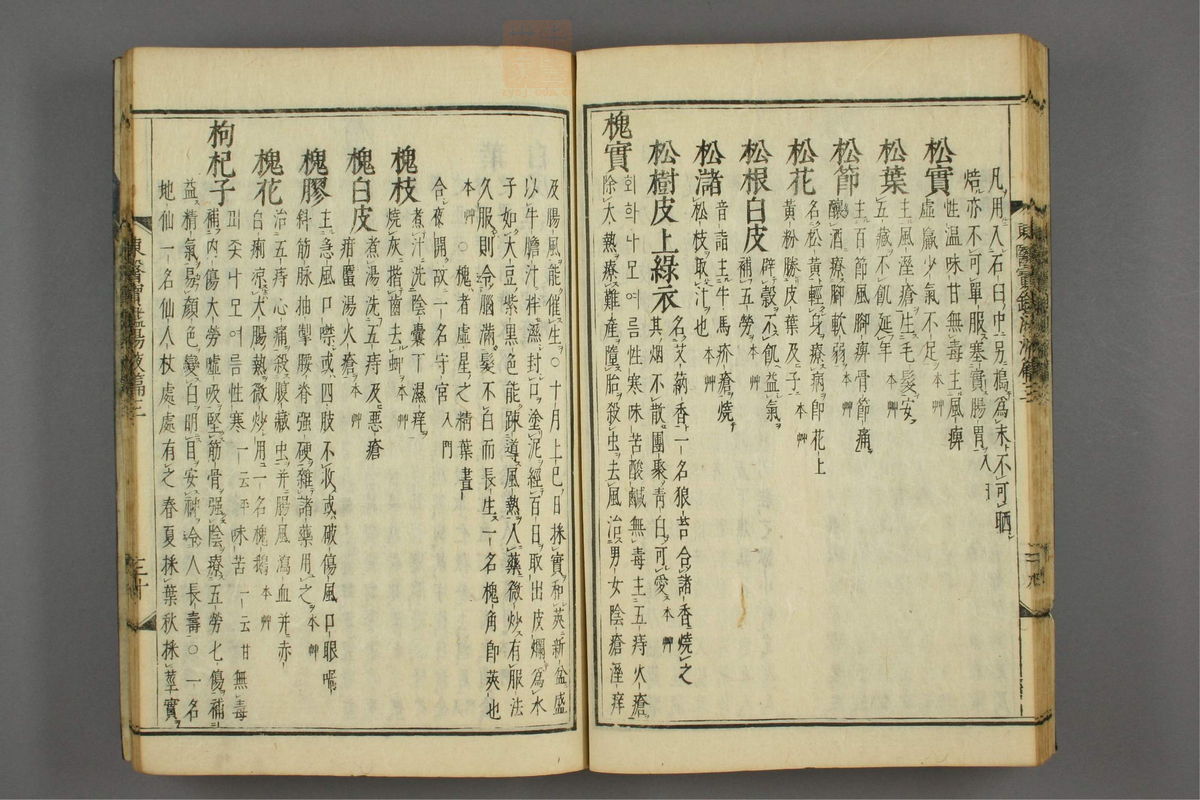 凡用入石臼中另搗爲末不可晒
焙亦不可單服塞實腸胃入門
松實
性温味甘無毒主風痺
虛羸少氣不足本艸
松葉
主風溼瘡生毛髮安
五藏不飢延年本艸
松節
主百節風脚痺骨節痛
釀酒療脚軟弱本艸
松花
名松黃輕身療病卽花上
黃粉勝皮葉及子本艸
松根白皮
辟穀不飢益氣
補五勞本艸
松㵭
音諸主牛馬疥瘡燒
松枝取汁也本艸
松樹皮上綠衣
名艾蒳香一名狼苔合諸香燒之
其烟不散團聚青白可愛本艸
槐實
회화나모여름性寒味苦酸鹹無毒主五痔火瘡
除大熱療難産墮胎殺虫去風治男女陰瘡溼痒
及腸風能催生○十月上巳日採實和莢新盆盛
以牛膽汁拌濕封口塗泥經百日取出皮爛爲水
子如大豆紫黑色能踈導風熱入藥微炒有服法
久服則令腦滿髮不白而長生一名槐角卽莢也
本艸○槐者虛星之精葉晝
合夜開故一名守宮入門
槐枝
煮汁洗陰囊下濕痒
燒灰揩齒去蚛本艸
槐白皮
煮湯洗五痔及惡瘡
疳䘌湯火瘡本艸
槐膠
主急風口噤或四肢不收或破傷風口眼喎
斜筋脉抽掣腰脊强硬雜諸藥用之本艸
槐花
治五痔心痛殺腹藏虫并腸風瀉血并赤
白痢凉大腸熱微炒用一名槐鵝本艸
枸杞子
괴좃나모여름性寒一云平味苦一云甘無毒
補內傷大勞噓吸堅筋骨强陰療五勞七傷補
益精氣易顏色變白明目安神令人長壽○一名
地仙一名仙人杖處處有之春夏採葉秋採莖實
東醫寶鑑湯液篇三
三十